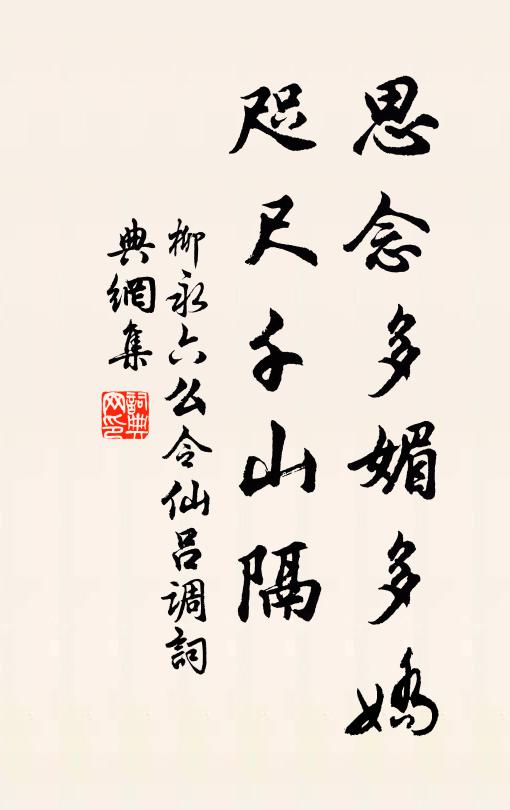 思念多媚多嬌
咫尺千山隔
柳永六么令仙呂调詞
典網集
詞典
网印